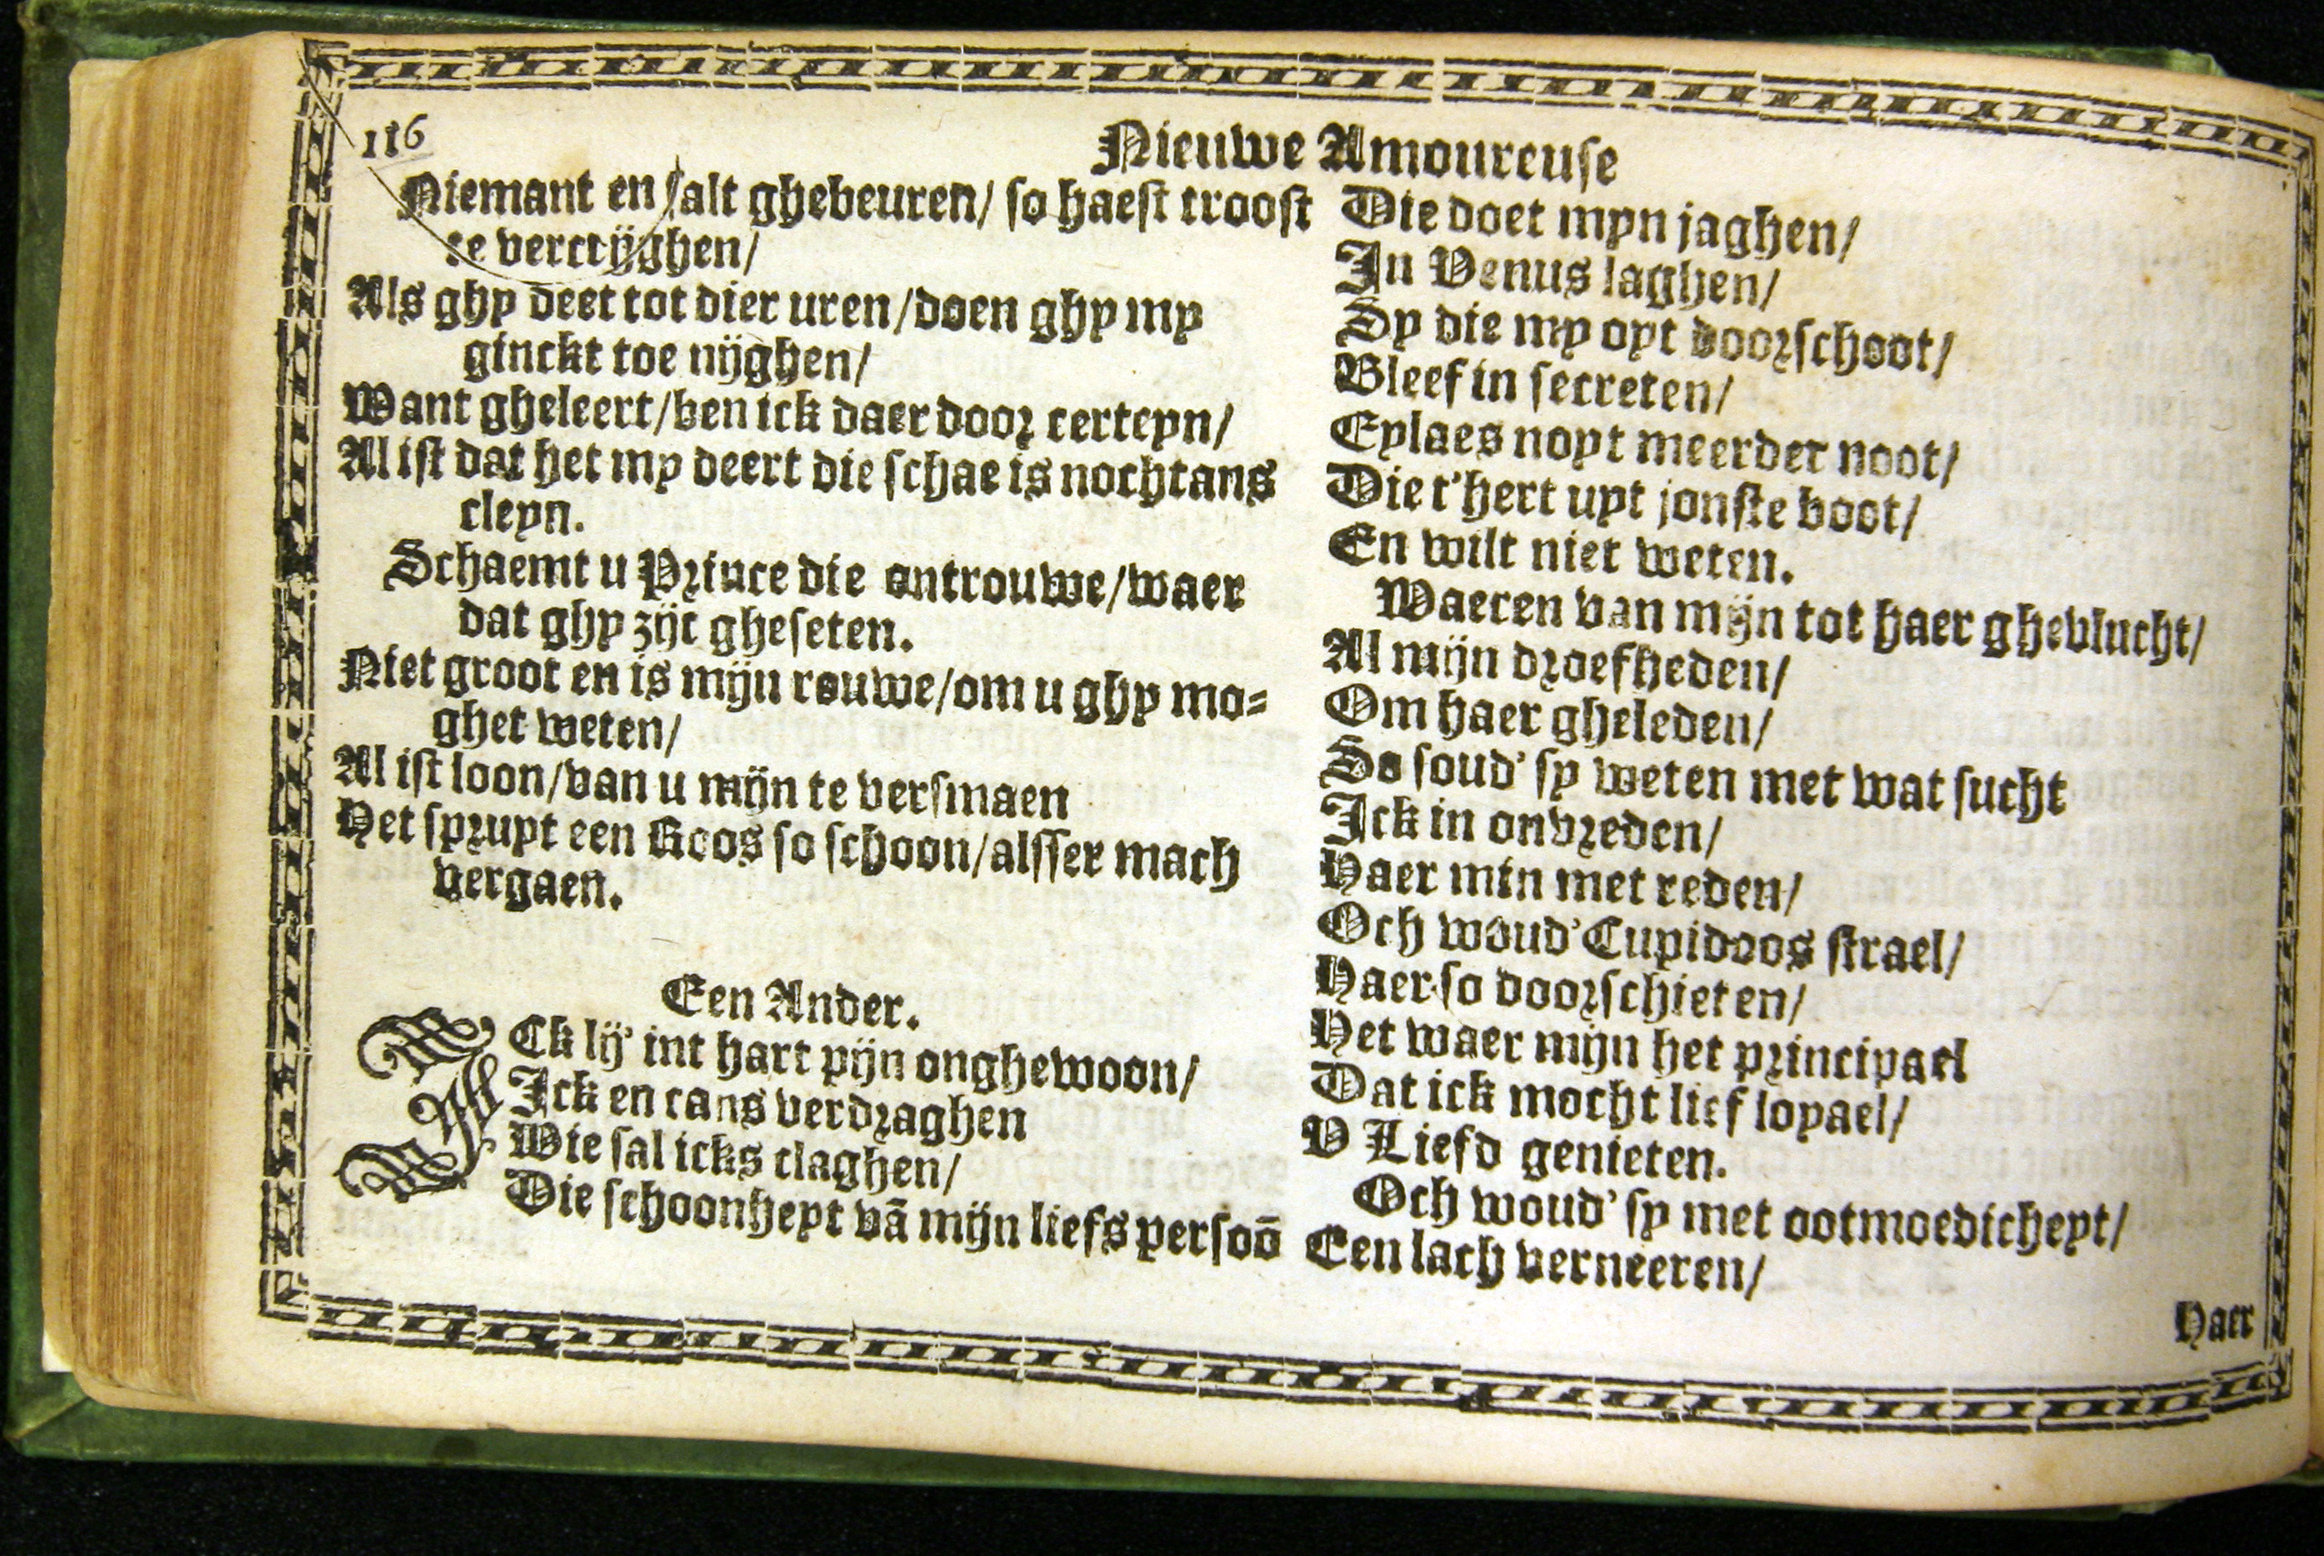 116
Nieuwe Amoureuse
Niemant en salt ghebeuren/ so haest troost
te vercrijghen/
Als ghy deet tot dier uren/doen ghy my
ginckt toe nijghen/
Want gheleert/ben ick daer door certeyn/
Al ist dat het my deert die schae is nochtans
cleyn.
Schaemt u Prince die ontrouwe/waer
dat ghy zijt gheseten.
Niet groot en is mijn rouwe/om u ghy mo-
ghet weten/
Al ist loon/van u mijn te versmaen
Het spruyt een Roos so schoon/alsser mach
vergaen.
Een Ander.
ICk lij' int hart pijn onghewoon/
Ick en cans verdraghen
Wie sal icks claghen/
Die schoonheyt vā mijn liefs persoō
Die doet myn jaghen/
In Venus laghen/
Sy die my oyt doorschoot/
Bleef in secreten/
Eylaes noyt meerder noot/
Die t'hert uyt jonste boot/
En wilt niet weten.
Waeren van mijn tot haer ghevlucht/
Al mijn droefheden/
Om haer gheleden/
So soud' sy weten met wat sucht
Ick in onvreden/
Haer min met reden/
Och woud' Cupidoos strael/
Haer so doorschieten/
Het waer mijn het principael
Dat ick mocht lief loyael/
V Liefd genieten.
Och woud' sy met ootmoedicheyt/
Een lach verneeren/
Haer